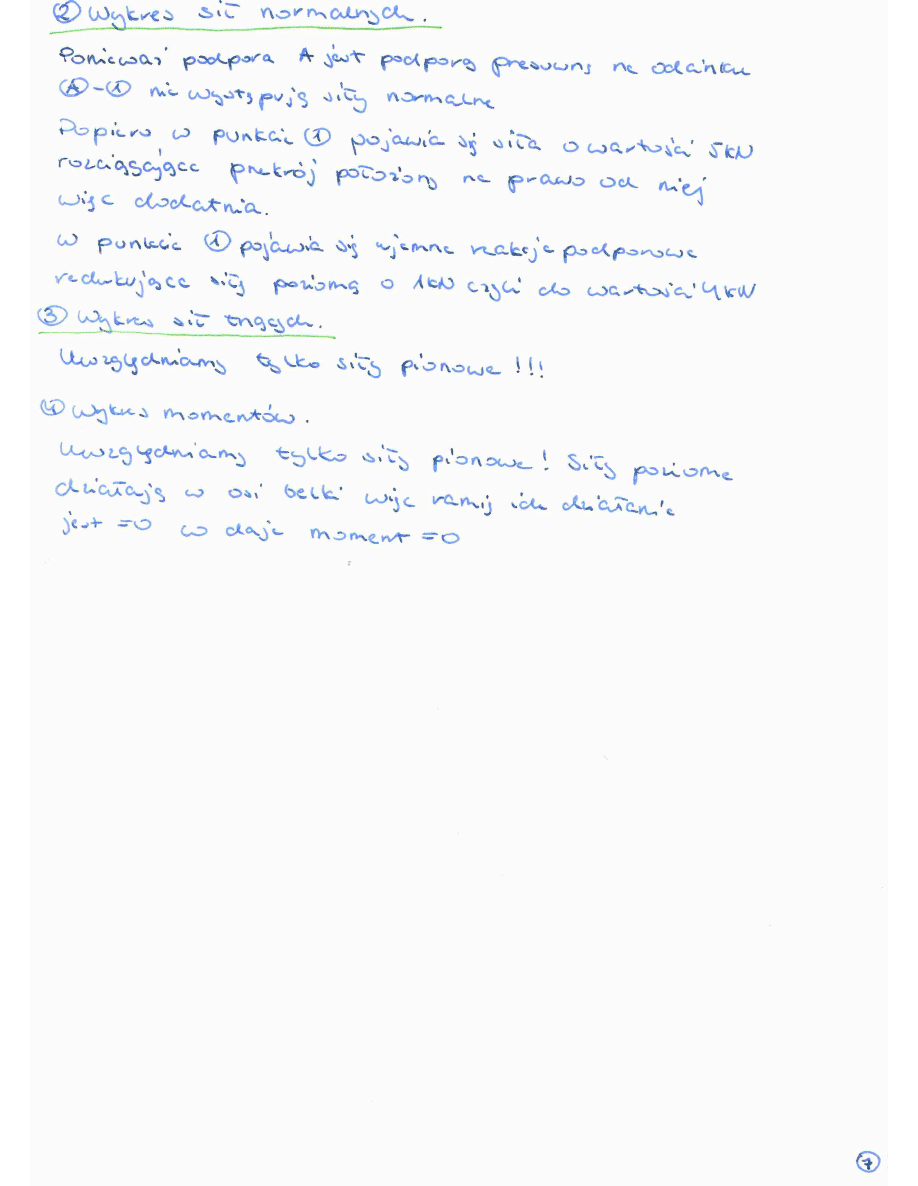 ② Wykres sił normalnych.
Ponieważ podpora A jest podporą przesuwną na odcinku
Ⓐ-① nie występują siły normalne
Dopiero w punkcie ① pojawia się siła o wartości 5kN
rozciągająca przekrój położony na prawo od niej
więc dodatnia.
W punkcie ① pojawia się ujemna reakcja podporowa
redukująca siłę poziomą o 1kN czyli do wartości 4kN
③ Wykres sił tnących.
Uwzględniamy tylko siły pionowe!!!
④ Wykres momentów.
Uwzględniamy tylko siły pionowe! Siły poziome
działają w osi belki więc ramię ich działania
jest =0 co daje moment =0
⑦